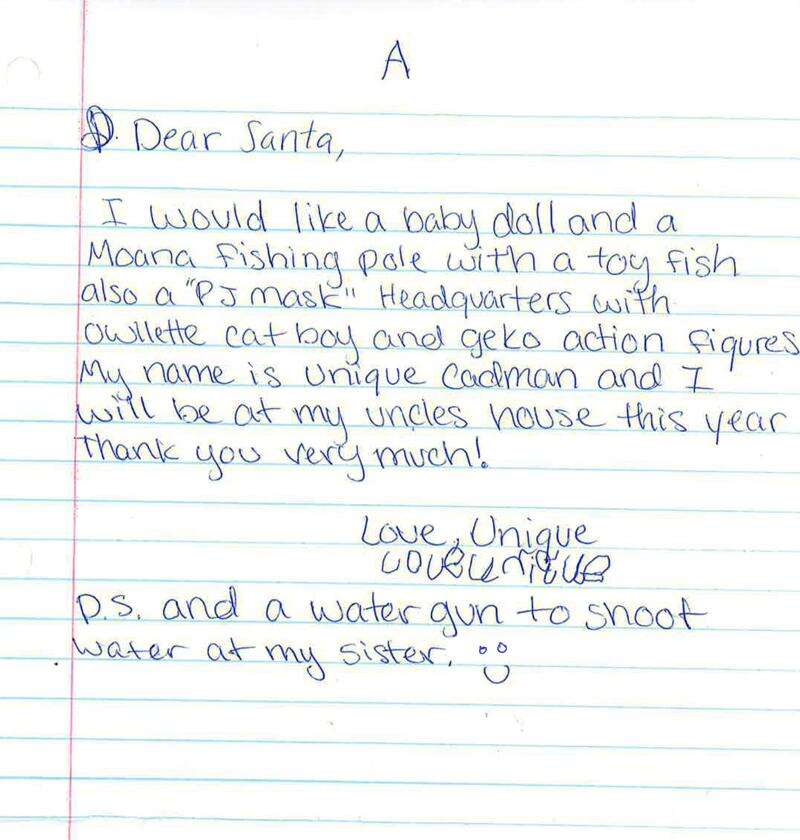 A
Dear Santa,
I would like a baby doll and a
Moana fishing pole with a toy fish
also a "PJ mask" Headquarters with
owllette catboy and geko action figures
My name is Unique Cadman and I
will be at my uncles house this year
thank you very much!
Love, Unique
Love Unique
P.S. and a water gun to shoot
water at my sister.